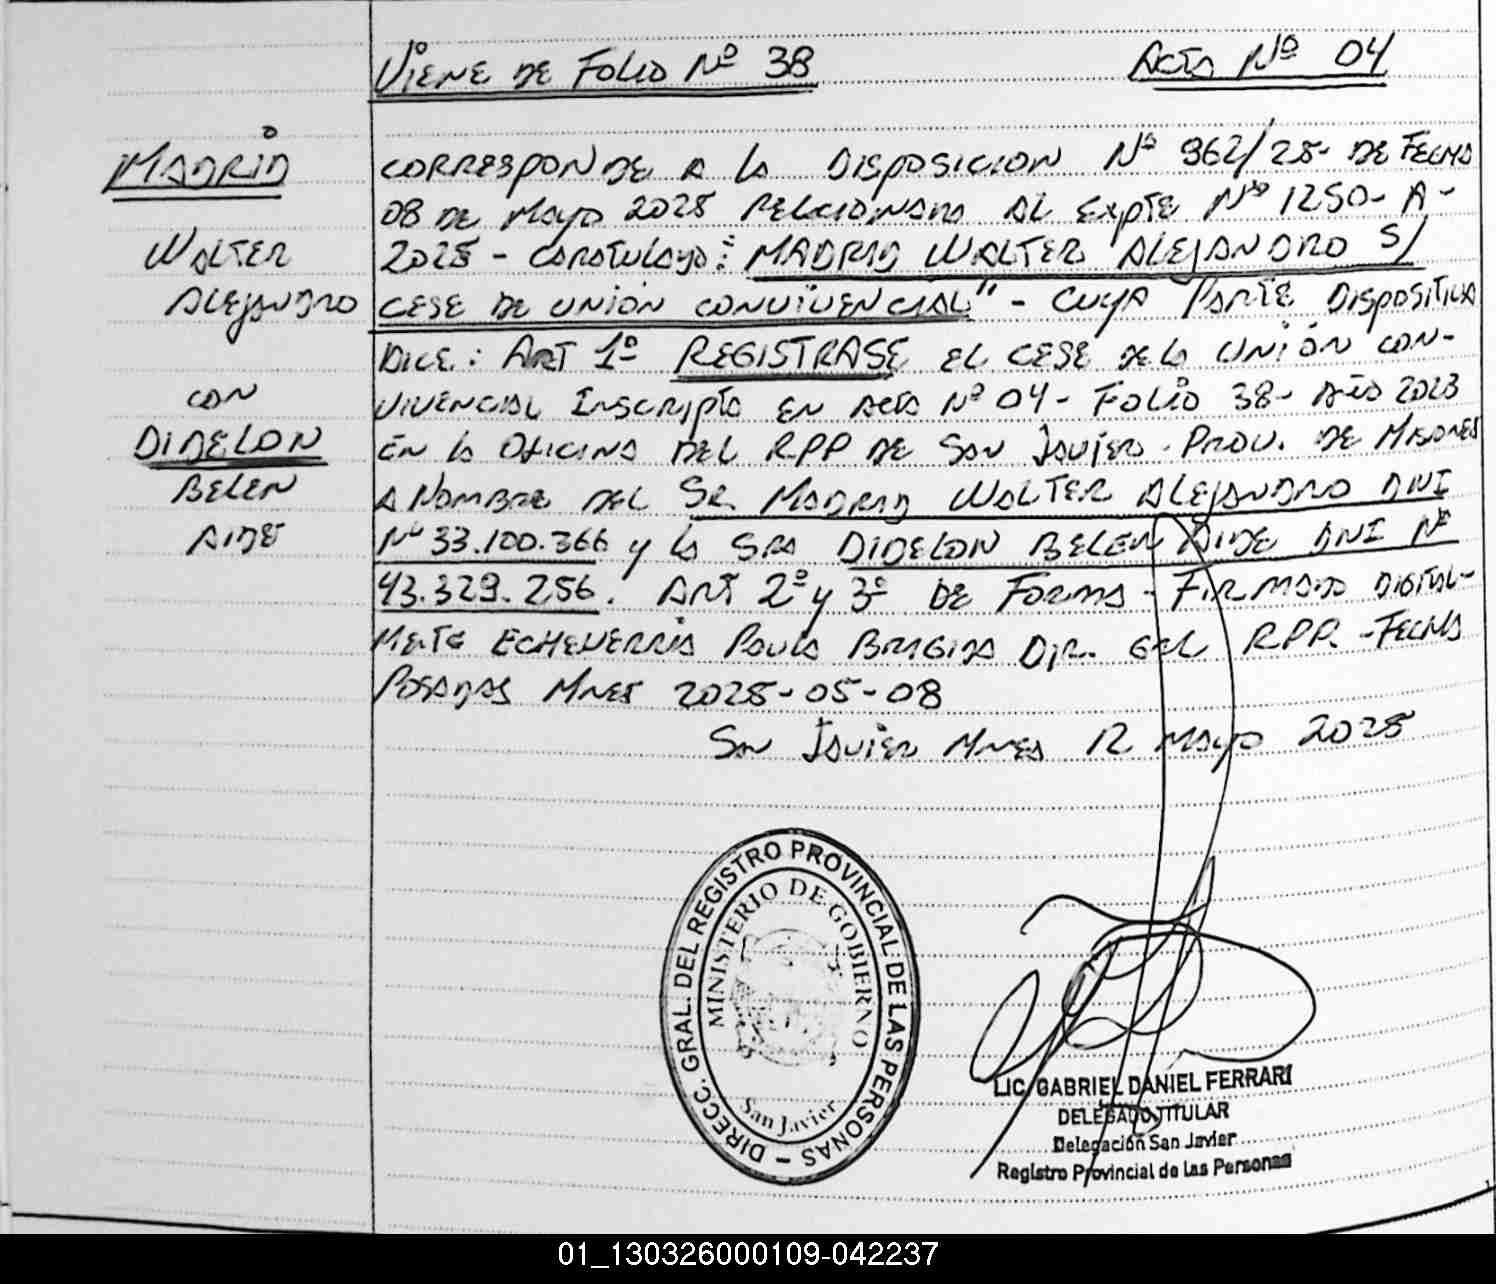 VIENE DE FOLIO Nº 38
ACTA Nº 04
MADRID
WALTER
ALEJANDRO
CON
DIDELON
BELEN
AIDE
CORRESPONDE A LA DISPOSICION Nº 962/25- DE FECHA
08 DE MAYO 2025 RELACIONADA AL EXPTE Nº 1250-A-
2025 - CARATULADO: MADRID WALTER ALEJANDRO S/
CESE DE UNIÓN CONVIVENCIAL" - CUYA PARTE DISPOSITIVA
DICE: ART 1º REGISTRASE EL CESE DE LA UNIÓN CON-
VIVENCIAL INSCRIPTA EN ACTA Nº 04 - FOLIO 38 - AÑO 2023
EN LA OFICINA DEL RPP DE SAN JAVIER - PROV. DE MISIONES
A NOMBRE DEL SR. MADRID WALTER ALEJANDRO DNI
Nº 33.100.366 y LA SRA DIDELON BELEN AIDE DNI Nº
43.329.256. ART 2º y 3º DE FORMA - FIRMADO DIGITAL-
MENTE ECHEVERRIA PAULA BRIGIDA DIR. GRL RPP. - FECHA
POSADAS MNES 2025-05-08
SAN JAVIER MNES 12 MAYO 2025
DIRECC. GRAL. DEL REGISTRO PROVINCIAL DE LAS PERSONAS -
MINISTERIO DE GOBIERNO
San Javier
LIC. GABRIEL DANIEL FERRARI
DELEGADO TITULAR
Delegación San Javier
Registro Provincial de las Personas
01_130326000109-042237